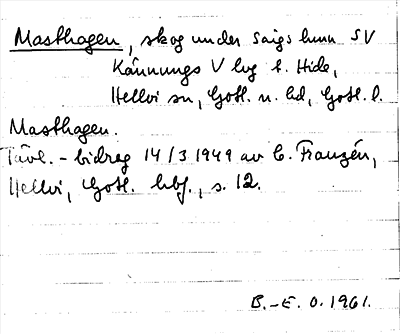 Masthagen, skog under Saigs hmn SV
Kännungs V lvg t. Hide,
Hellvi sn, Gotl. n. hd, Gotl. l.
Masthagen.
Tävl.-bidrag 14/3 1949 av C. Franzén,
Hellvi, Gotl. hbf., s. 12.
B.-E. O. 1961.